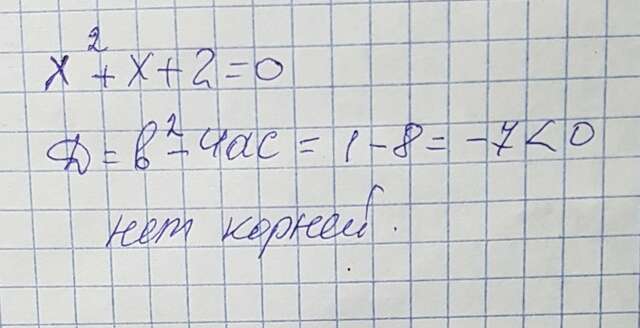 x²+x+2=0
D=b²-4ac=1-8=-7<0
нет корней.